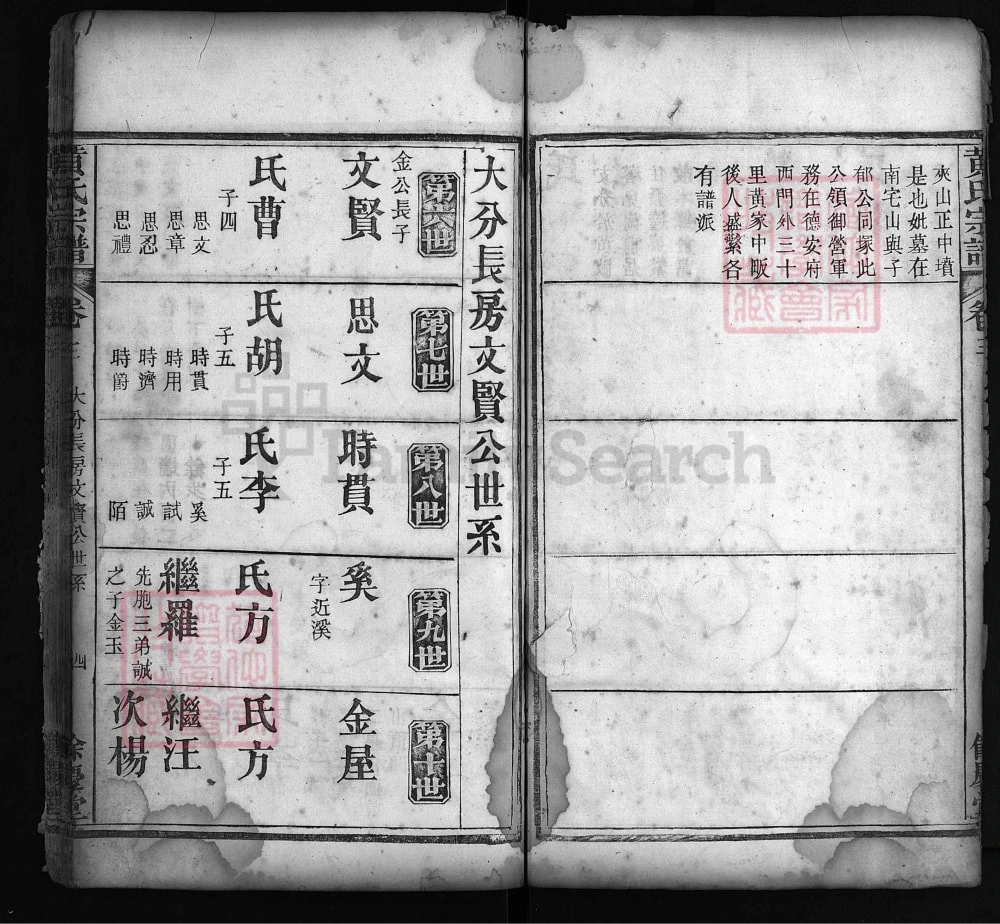 黄氏宗譜
卷三
夾山正中墳
是也妣墓在
南宅山與子
郁公同塚此
公領御營軍
務在德安府
西門外三十
里黄家中畈
後人盛繁各
有譜派
大分長房文賢公世系
第六世
文賢
金公長子
氏曹
子四
思文
思章
思忍
思禮
第七世
思文
氏胡
子五
時貫
時用
時濟
時爵
第八世
時貫
氏李
子五
奚
試
誠
陌
第九世
奚
字近溪
氏方
繼羅
先胞三弟誠
之子金玉
第十世
金屋
氏方
繼汪
次楊
黄氏宗譜
卷三
大分長房文賢公世系
四
餘慶堂
FamilySearch